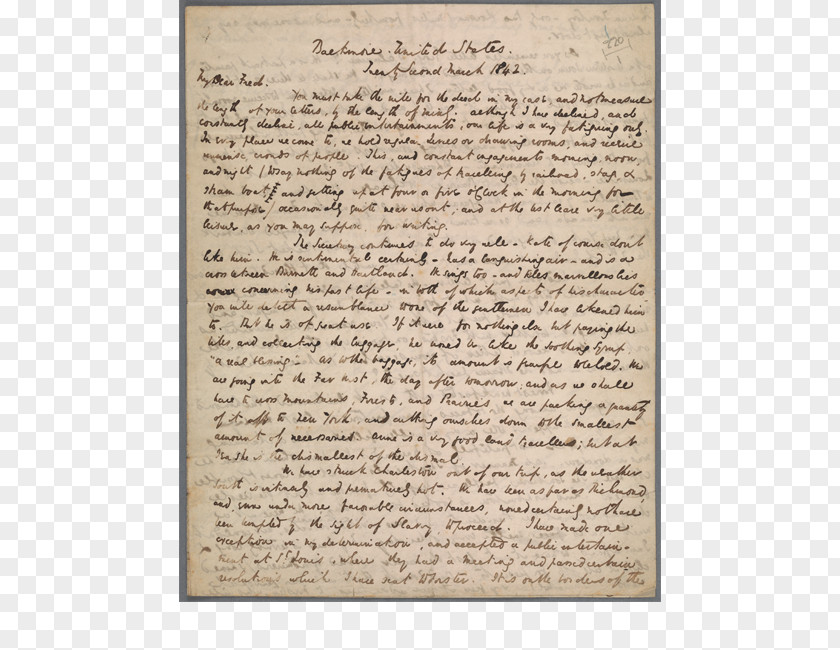 220
Baltimore. United States.
Twenty Second March 1842.
My Dear Fred.
You must take the will for the deed in my case, and not measure
the length of your letters, by the length of mine. Although I have declined, and
constantly decline, all public entertainments, our life is a very fatiguing one.
In every place we come to, we hold regular levees or drawing rooms, and receive
immense crowds of people. This, and constant engagements morning, noon,
and night (to say nothing of the fatigues of travelling by railroad, stage, &
steam boat and getting up at four or five o'Clock in the morning for
that purpose) occasionally quite wear us out; and at the best leave very little
leisure, as you may suppose, for writing.
The Secretary continues to do very well - Kate of course don't
like him. He is sentimental certainly - has a languishing air - and is a
cross between Burnett and Maitland. He sings too - and tells marvellous lies
concerning his past life - in both of which aspects of his character
you will detect a resemblance to one of the gentlemen I have likened him
to. But he is of great use. If it were for nothing else but paying the
bills, and collecting the luggage, he would be like the Soothing Syrup
"a real blessing". As to the baggage, its amount is frightful to behold. We
are going into the Far West, the day after tomorrow; and as we shall
have to cross mountains, Forests, and Prairies we are packing a quantity
of it off to New York, and cutting ourselves down to the smallest
amount of necessaries. Anne is a very good land traveller; but at
Sea she is the dismallest of the dismal.
We have struck Charleston out of our trip, as the weather
South is intensely and prematurely hot. We have been as far as Richmond
and, even under more favorable circumstances, would certainly not have
been tempted by the sight of Slavery to proceed. I have made one
exception in my determination, and accepted a public entertain-
ment at St Louis, where they had a meeting and passed certain
resolutions which I have sent Forster. It is on the borders of the